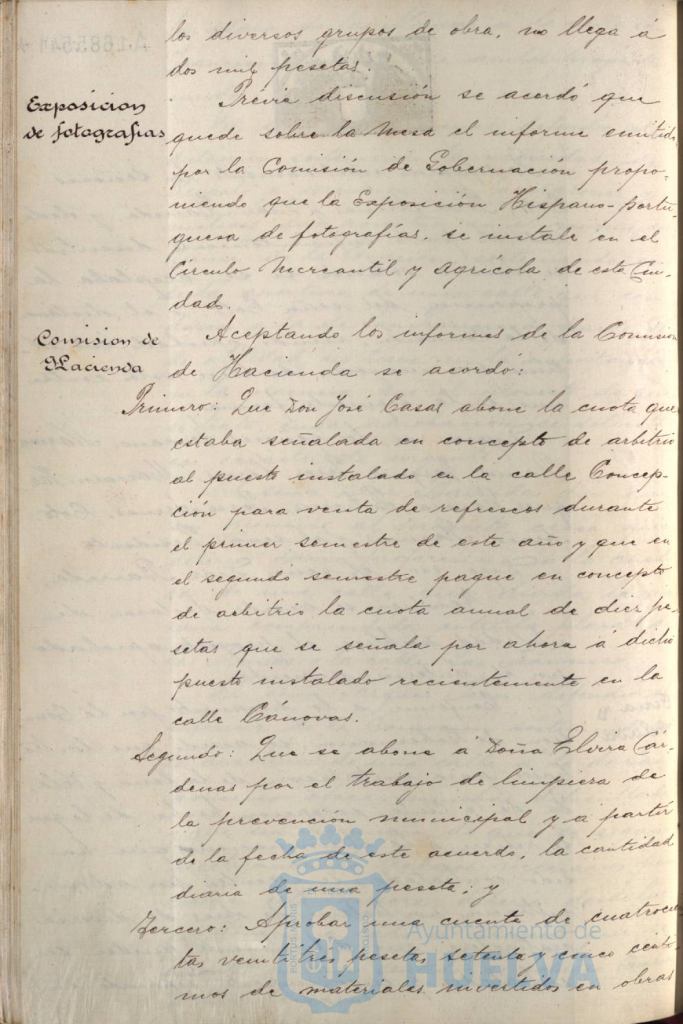 los diversos grupos de obra, no llega á
dos mil pesetas.
Exposicion
de fotografias
Previa discusión se acordó que
quede sobre la Mesa el informe emitido
por la Comisión de Gobernación propo-
niendo que la Exposición Hispano-portu-
guesa de fotografías, se instale en el
Circulo Mercantil y Agrícola de esta Ciu-
dad.
Comision de
Hacienda
Aceptando los informes de la Comision
de Hacienda se acordó:
Primero: Que Don José Casas abone la cuota que
estaba señalada en concepto de arbitrio
al puesto instalado en la calle Concep-
ción para venta de refrescos durante
el primer semestre de este año y que en
el segundo semestre pague en concepto
de arbitrio la cuota anual de diez pe-
setas que se señala por ahora á dicho
puesto instalado recientemente en la
calle Cánovas.
Segundo: Que se abone á Doña Elvira Cár-
denas por el trabajo de limpieza de
la prevención municipal y a partir
de la fecha de este acuerdo, la cantidad
diaria de una peseta; y
Tercero: Aprobar una cuenta de cuatrocien
tas veintitres pesetas setenta y cinco cénti
mos de materiales invertidos en obras
Ayuntamiento de
HUELVA